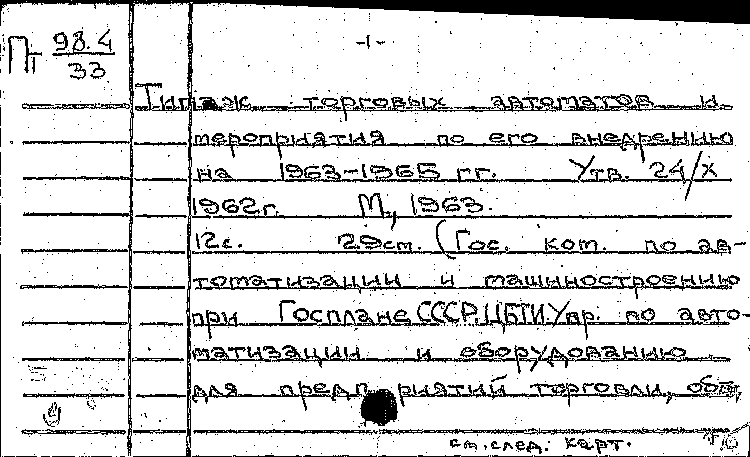 -1-
Пт 98.4
33
Типаж торговых автоматов и
мероприятия по его внедрению
на 1963-1965 гг. Утв. 24/X
1962г. М., 1963.
12с. 29см. (Гос. ком. по ав-
томатизации и машиностроению
при Госплане СССР. ЦБТИ. Упр. по авто-
матизации и оборудованию
для предприятий торговли, общ.
см. след. карт.